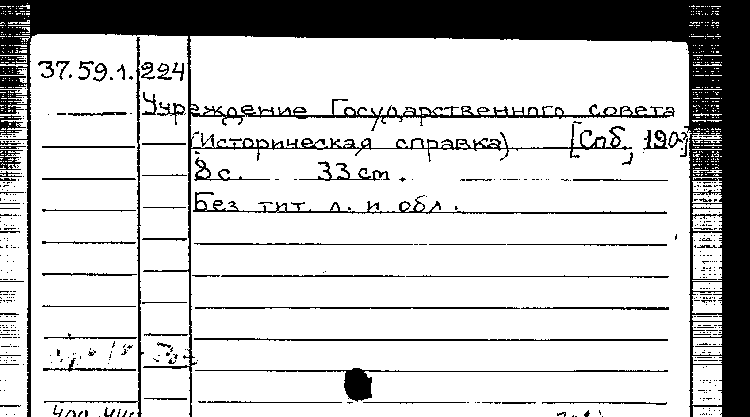 37.59.1.224
Учреждение Государственного совета
(Историческая справка) [Спб,
8 с. 33 cm.
Без тит. л. и обл.